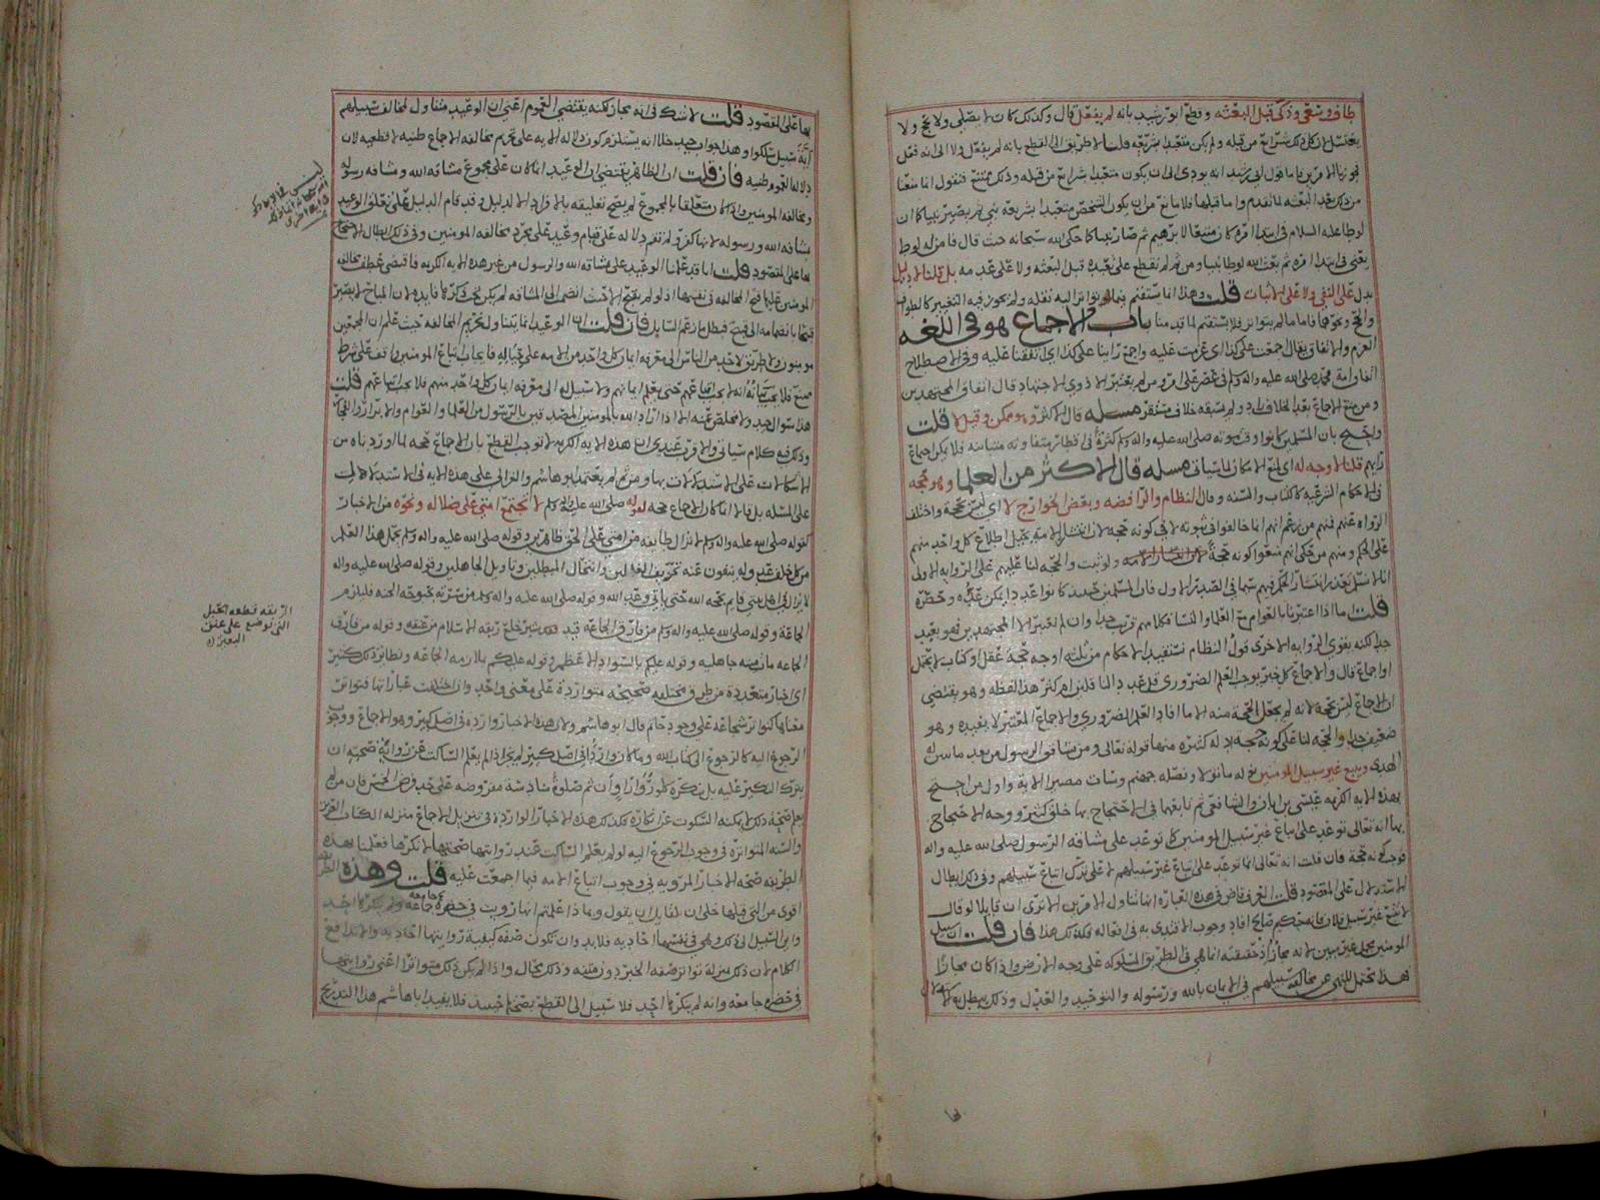 طاف وسعى وذكى قبل البعثه وقطع ابو رشيد بانه لم يفعل قال وكذلك كان لا يصلى ولا يحج ولا
يغتسل لان كل ذلك شرائع من قبله ولم يكن متعبدا بشريعه قلنا لا طريق الى القطع بانه لم يفعل ولا الى انه فعل
من ذلك بعد البعثه لما تقدم واما قبلها فلا مانع من ان يكون الشخص متعبدا بشريعه نبى ثم يصير نبيا كما ان
لوطا عليه السلام فى ابتدا امره كان متبعا لابرهيم ثم صار نبيا كما حكى الله سبحانه حيث قال فامن له لوط
يعنى فى ابتدا امره ثم بعث الله لوطا نبيا ومن ثم لم نقطع على تعبده قبل البعثه ولا على عدمه بل قلنا لا دليل
يدل على النفى ولا على الاثبات قلت وهذا انما يستقيم فيما
والحج ونحوهما فاما ما لم يتواتر فلا يستقيم لما قدمنا باب الاجماع هو فى اللغه
العزم والاتفاق يقال اجمعت على كذا اى عزمت عليه واجمع راينا على كذا اى اتفقنا عليه وفى الاصطلاح
اتفاق امة محمد صلى الله عليه واله وسلم فى عصر على امر ومن لم يعتبر الا ذوى الاجتهاد قال اتفاق المجتهدين
ومن منع الاجماع بعد الخلاف زاد ولم يسبقه خلاف مستقر مسله قال الاكثر وهو ممكن وقيل لا قلت
واحتج بان المسلمين كانوا وقت موته صلى الله عليه واله وسلم كثرة فى اقطار متفاوته متباينه فلا يمكن اجماع
رايهم قلنا لا وجه له اى لمنع الامكان لما سياتى مسله قال الاكثر من العلما وهو حجه
فى الاحكام الشرعيه كالكتاب والسنه وقال النظام والرافضه وبعض الخوارج لا اى ليس بحجة واختلف
الرواه عنهم فمنهم من زعم انهم انما خالفوا فى ثبوته لا فى كونه حجه لان انتشار الامه يحيل اطلاع كل واحد منهم
على الحكم ومنهم من حكى انهم منعوا كونه حجة ولو ثبت والحجه لنا عليهم على الروايه الاولى
انا لا نسلم تعذر انتشار الحكم فيهم سيما فى الصدر الاول فان المسلمين حينئذ كانوا عددا يمكن عده وحصره
قلت اما اذا اعتبرنا بالعوام مع العلما والنسا فكلامهم قريب جدا وان لم نعتبر الا المجتهدين فهو بعيد
جدا لكنه يقوى الروايه الاخرى قول النظام نستفيد الاحكام من ثلثه اوجه حجة عقل او كتاب لا يحتمل
او اجماع قال والاجماع كل خبر يوجب العلم الضرورى
ان الاجماع ليس بحجة لانه لم يجعل الحجة منه الا ما افاد العلم الضرورى والاجماع المعتبر لا يفيده وهو
ضعيف جدا والحجه لنا على كونه حجه ادله كثيره منها قوله تعالى ومن يشاقق الرسول من بعد ما تبين له
الهدى ويتبع غير سبيل المومنين نوله ما تولى ونصله جهنم وساءت مصيرا الايه واول من احتج
بهذه الايه الكريمه عيسى بن ابان والشافعى ثم تابعهما فى الاحتجاج بها خلق كثير ووجه الاحتجاج
بها انه تعالى توعد على اتباع غير سبيل المومنين كما توعد على مشاقه الرسول صلى الله عليه واله
فوجب كونه حجة فان قلت انه تعالى انما توعد على اتباع غير سبيلهم لا على ترك اتباع سبيلهم وفى ذلك ابطال
الاستدلال على المقصود قلت العرف قاض فى هذه العباره انها تتناول الامرين الا ترى ان قايلا لو قال
لا تتبع غير سبيل فلان فانه حكيم صالح افاد وجوب الاقتدى به فى افعاله فكذلك هذا فان قلت ان سبيل
المومنين مجمل غير مبين لانه مجاز اذ حقيقته انما هى فى الطريق المسلوكه على وجه الارض واذا كان مجازا
فهذا يحتمل النهى عن مخالفه سبيلهم فى الايمان بالله ورسوله والتوحيد والعدل وذلك يبطل
بها على المقصود قلت لا شك فى انه مجاز لكنه يقتضى العموم اعنى ان الوعيد متناول لمخالف سبيلهم
اية سبيل سلكوا وهذا جواب جيد خلا انه يستلزم كون دلالة الايه على تحريم مخالفه الاجماع ظنيه لا قطعيه لان
دلاله العموم ظنيه فان قلت ان الظاهر يقتضى ان الوعيد انما كان على مجموع مشاقه الله ومشاقه رسوله
ومخالفه المومنين واذا كان متعلقا بالمجموع لم يصح تعليقه بالافراد الا لدليل وقد قام الدليل على تعلق الوعيد
بمشاقه الله ورسوله لانها كفر ولم تقم دلاله على قيام وعيد على مجرد مخالفه المومنين وفى ذلك ابطال الاحتجاج
بها على المقصود قلت انا قد علمنا الوعيد على مشاقه الله والرسول من غير هذه الايه الكريمه فاقتضى عطف مخالفه
المومنين عليها قبح المخالفه فى نفسها اذ لو لم يقبح الا حيث انضم الى المشاقه لم يكن تحت ذكرها فايده لان المباح لا يصير
قبيحا بانضمامه الى قبيح فبطل ما زعم السايل فان قلت ان الوعيد انما يتناول تحريم المخالفه حيث علم ان المجمعين
مومنون ولا طريق لاحد من الناس الى معرفه ايمان كل واحد من الامه على حياله فايجاب اتباع المومنين واقف على شرط
ممتنع فلا يجب بيانه انه لا يجب اتباعهم حتى يعلم ايمانهم ولا سبيل له الى معرفه ايمان كل واحد منهم فلا يجب اتباعهم قلت
هذا سوال جيد ولا مخلص عنه الا اذا اراد الله بالمومنين المصدقين بالرسول من العلما والعوام والابرار والفجار
وذلك فيه كلام سياتى والاقرب عندى ان هذه الايه الكريمه لا توجب القطع بان الاجماع حجه لما اوردناه من
الاشكالات على الاستدلال بها ومن ثم لم يعتمد ابو هاشم والغزالى على هذه الايه فى الاستدلال
على المسله بل قالا انما كان الاجماع حجه لقوله صلى الله عليه واله وسلم لا تجتمع امتى على ضلاله ونحوه من الاخبار
كقوله صلى الله عليه واله وسلم لا تزال طايفه من امتى على الحق ظاهرين وقوله صلى الله عليه واله وسلم يحمل هذا العلم
من كل خلف عدوله ينفون عنه تحريف الغالين وانتحال المبطلين وتاويل الجاهلين وقوله صلى الله عليه واله
حتى ياتى وعد الله وقوله صلى الله عليه واله وسلم من سرته بحبوحه الجنه فليلزم
الجماعة وقوله صلى الله عليه واله وسلم من فارق الجماعة قيد شبر خلع ربقه الاسلام من عنقه وقوله من فارق
الجماعه مات ميته جاهليه وقوله عليكم بالسواد الاعظم وقوله عليكم بملازمه الجماعه ونظائر ذلك كثير
اى اخبار متعددة من طرق مختلفه صحيحه متواردة على معنى واحد وان اختلفت عباراتها فتواتر
معناها كتواتر شجاعه على وجود حاتم قال ابو هاشم ولان هذه الاخبار وارده فى اصل كبير وهو الاجماع ووجوب
الرجوع اليه كالرجوع الى كتاب الله وما كان واردا فى اصل كبير لم يجز اذا لم يعلم الساكت عن رواته صحته ان
يترك النكير عليه بل ينكره كما لو زوى راو ان ثم صلوة سادسه مفروضه على حد فرض الخمس فان من لم
يعلم صحة ذلك لا يمكنه السكوت عن انكاره فكذلك هذه الاخبار الوارده فى تنزيل الاجماع منزله الكتاب العزيز
والسنه المتواتره فى وجوب الرجوع اليه لو لم يعلم الساكت عند روايتها صحتها لانكرها فعلمنا بهذه
الطريقه صحه الاخبار المرويه فى وجوب اتباع الامه فيما اجمعت عليه قلت وهذه الطريقه
اقوى من التى قبلها خلا ان لقايل ان يقول وبماذا علمتم انها رويت فى حضرة جماعه ولم ينكرها احد
واين السبيل الى ذلك وهو فى نفسها احاديه فلا بد وان تكون صفه كيفية روايتها احاديه والا تدافع
الكلام لان ذلك بمنزله تواتر صفه الخبر دون متنه وذلك محال واذا لم يكن ذلك متواترا اعنى روايتها
فى حضره جامعه وانه لم ينكرها احد فلا سبيل الى القطع بصحتها حينئذ فلا يفيد ابا هاشم هذا التدريج
الربقه قطعه الحبل
التى توضع على عنق
البعير